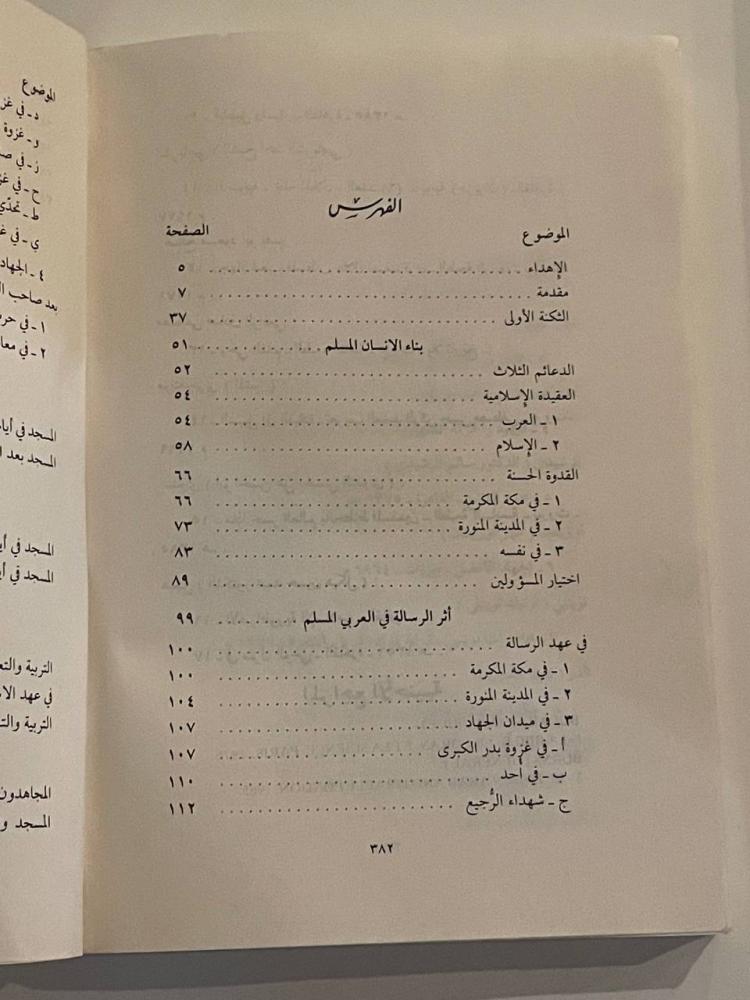 الفهرس
الموضوع الصفحة
الإهداء ........ ٥
مقدمة ........ ٧
الثكنة الأولى ........ ٣٧
بناء الانسان المسلم ........ ٥١
الدعائم الثلاث ........ ٥٢
العقيدة الإسلامية ........ ٥٤
١ - العرب ........ ٥٤
٢ - الإسلام ........ ٥٨
القدوة الحسنة ........ ٦٦
١ - في مكة المكرمة ........ ٦٦
٢ - في المدينة المنورة ........ ٧٣
٣ - في نفسه ........ ٨٣
اختيار المسؤولين ........ ٨٩
أثر الرسالة في العربي المسلم ........ ٩٩
في عهد الرسالة ........ ١٠٠
١ - في مكة المكرمة ........ ١٠٠
٢ - في المدينة المنورة ........ ١٠٤
٣ - في ميدان الجهاد ........ ١٠٧
أ - في غزوة بدر الكبرى ........ ١٠٧
ب - في أحد ........ ١١٠
ج - شهداء الرُّجيع ........ ١١٢
٣٨٢
الموضوع
د - في
و - غزوة
ز - في
ح - في
ط - تحدّي
ي - في
٤ - الجهاد
بعد صاحب
١ - في
٢ - في
المسجد في
المسجد بعد
المسجد في
المسجد في
التربية
في عهد
التربية
المجاهدون
المسجد